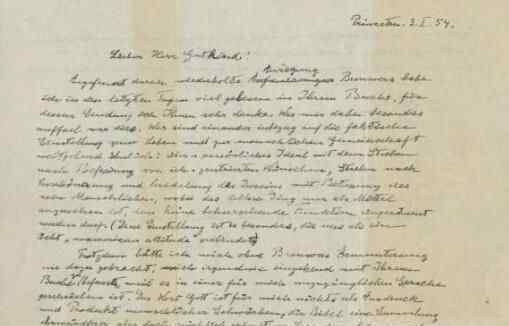 Princeton. 3.I.54.
Lieber Herr Gutkind!
Angefeuert durch wiederholte Anregung Brouwers habe
ich in den letzten Tagen viel gelesen in Ihrem Buche, für
dessen Sendung ich Ihnen sehr danke. Was mir dabei besonders
auffiel war dies. Wir sind einander inbezug auf die faktische
Einstellung zum Leben und zur menschlichen Gemeinschaft
weitgehend ähnlich: persönliches Ideal mit dem Streben
nach Befreiung von ich-zentrierten Wünschen, Streben nach
Verschönerung und Veredelung des Daseins mit Betonung des
rein Menschlichen, wobei das leblose Ding nur als Mittel
anzusehen ist, dem keine beherrschende Funktion eingeräumt
werden darf. (Diese Einstellung ist es besonders, die uns als ein
echt „unamerican attitude" verbindet)
Trotzdem hätte ich mich ohne Brouwers Ermunterung
nie dazu gebracht, mich irgendwie eingehend mit Ihrem
Buche zu befassen, weil es in einer für mich unzugänglichen Sprache
geschrieben ist. Das Wort Gott ist für mich nichts als Ausdruck
und Produkt menschlicher Schwächen, die Bibel eine Sammlung
ehrwürdiger aber doch reichlich